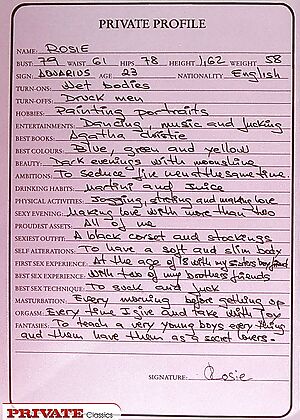 PRIVATE PROFILE
NAME: ROSIE
BUST: 79 WAIST 61 HIPS 78 HEIGHT 1,62 WEIGHT 58
SIGN: AQUARIUS AGE 23 NATIONALITY English
TURN-ONS: Wet bodies
TURN-OFFS: Drunk men
HOBBIES: Painting portraits
ENTERTAINMENTS: Dancing, music and fucking
BEST BOOKS: Agatha Christie
BEST COLOURS: Blue, green and yellow
BEAUTY: Dark evenings with moonshine
AMBITIONS: To seduce five men at the same time.
DRINKING HABITS: Martini and Juice
PHYSICAL ACTIVITIES: Jogging, and making love
SEXY EVENING: Making love with more than two
PROUDEST ASSETS: All of me
SEXIEST OUTFIT: A black corset and stockings
SELF ALTERATIONS: To have a soft and slim body
BEST SEX EXPERIENCE: With two of my brothers friends
BEST SEX TECHNIQUE: To suck and fuck
MASTURBATION: Every morning before getting up
ORGASM: Every time I give and take with joy
SIGNATURE: Rosie
PRIVATE Classics